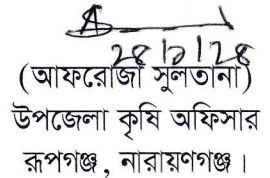 ২৪|৯|২৪
(আফরোজা সুলতানা)
উপজেলা কৃষি অফিসার
রূপগঞ্জ, নারায়ণগঞ্জ।